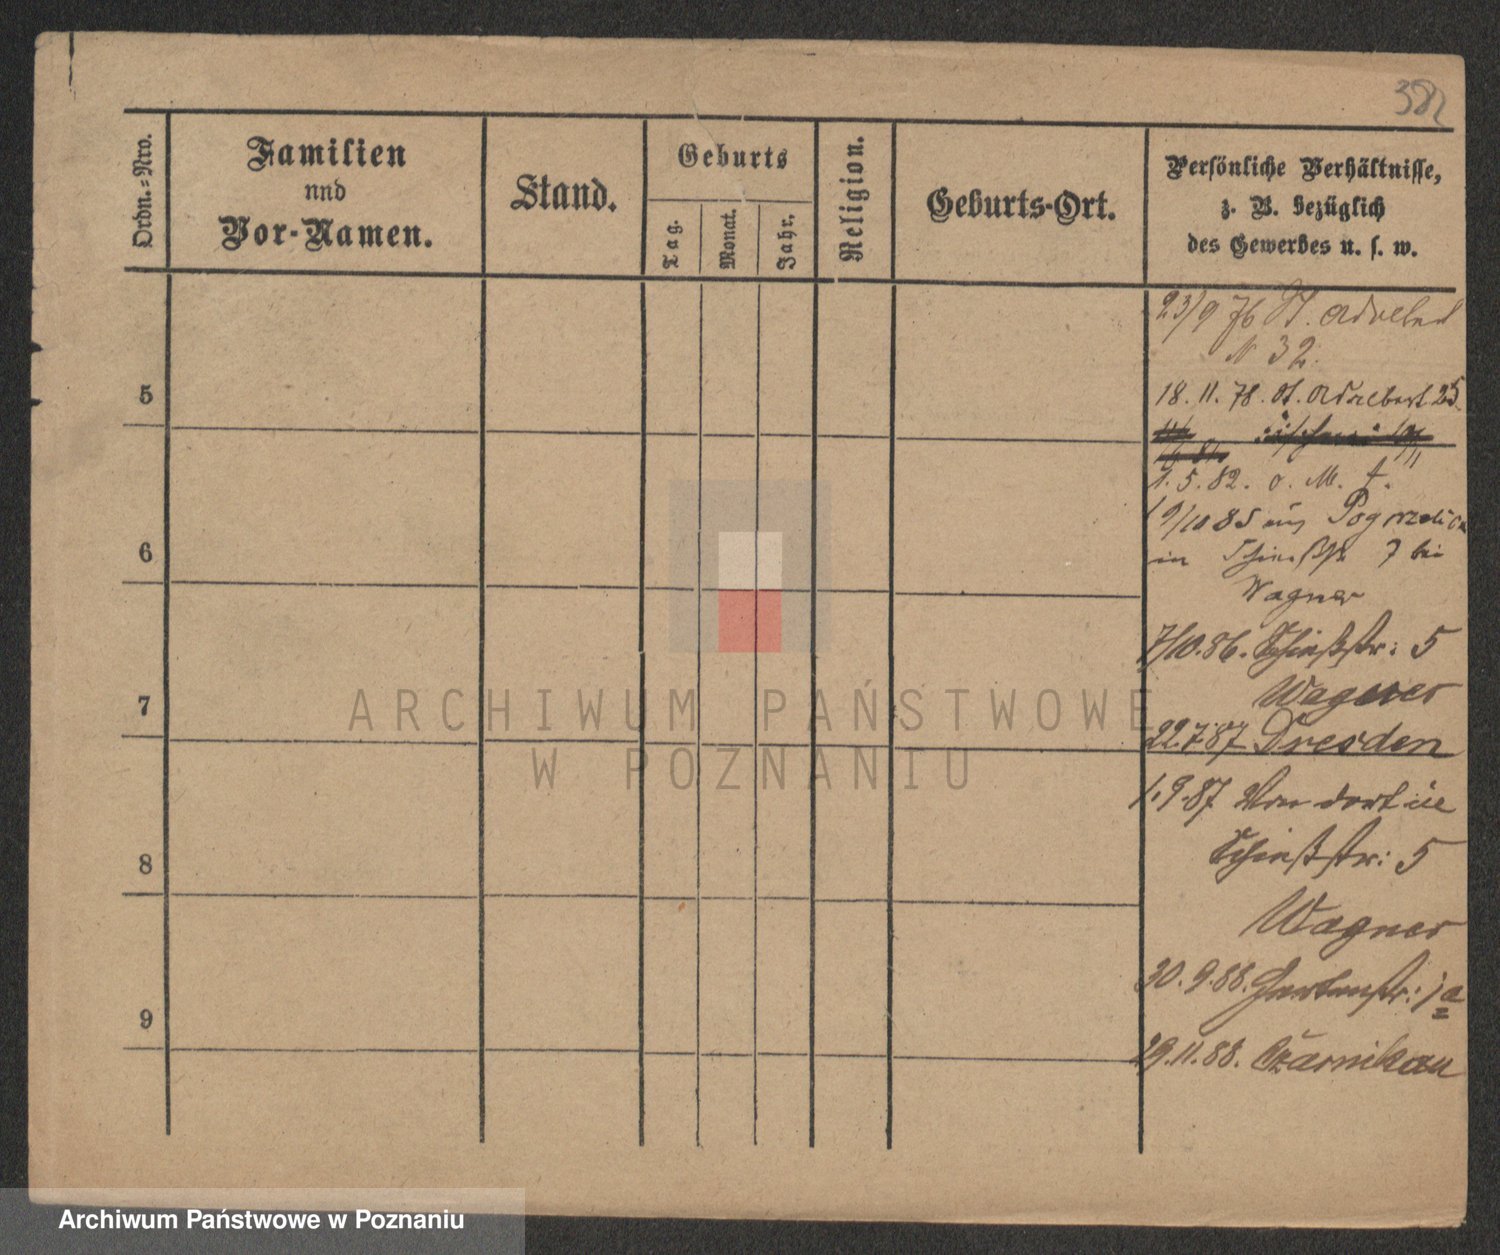 382
Ordn.=Nro.
Familien
und
Vor-Namen.
Stand.
Geburts
Tag.
Monat.
Jahr.
Religion.
Geburts-Ort.
Persönliche Verhältnisse,
z. B. bezüglich
des Gewerbes u. s. w.
23/9 76 St. Adalbert
N 32.
18. 11. 78. St. Adalbert 25.
5
1. 5. 82. o. M. t.
19/10 85 aus Pogorzelice
in Schießstr 7 bei
Wagner
6
7/10.86. Schießstr: 5
Wagner
22.7.87 Dresden
7
1.9.87 Von dort in
Schießstr: 5
Wagner
8
30.9.88. Gartenstr: 1a
29.11.88. Czarnikau
9
ARCHIWUM PAŃSTWOWE
W POZNANIU
Archiwum Państwowe w Poznaniu